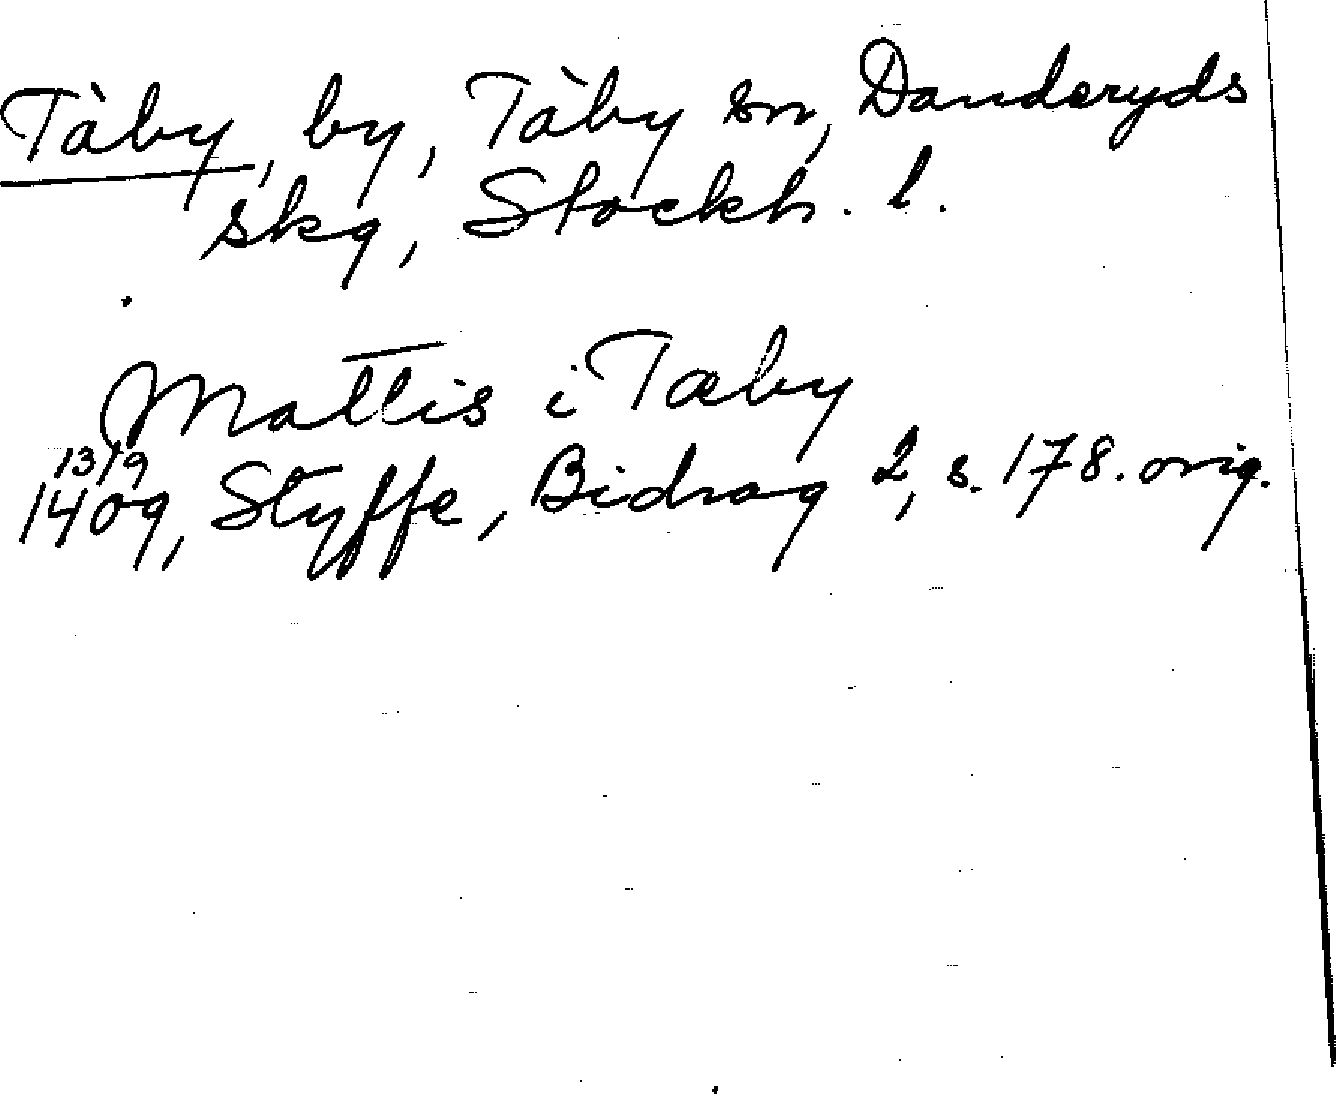 Täby, by, Täby sn, Danderyds
skg, Stockh. l.
Mattis i Tæby
13/9
1409, Styffe, Bidrag 2, s. 178. orig.